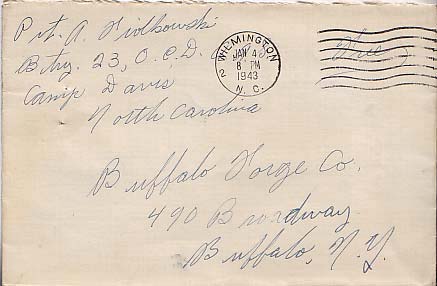 Pvt. A. Fiolkowski
Btry. 23, O.C.D.
Camp Davis
North Carolina
WILMINGTON
2
JAN 4
8 PM
1943
N. C.
Free
Buffalo Forge Co.
490 Broadway
Buffalo, N.Y.